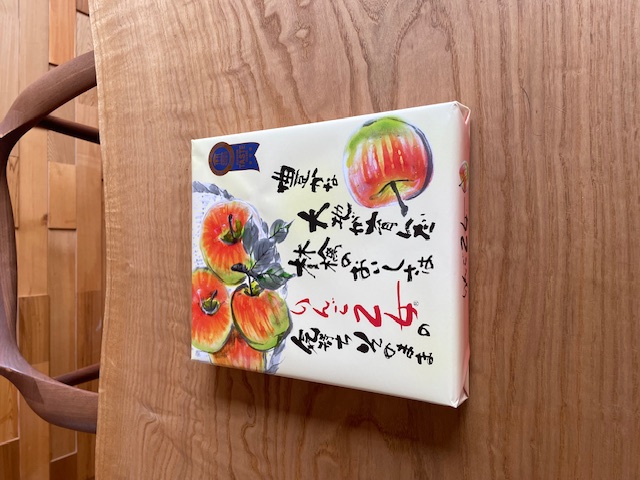 豊かな
大地が育んだ
林檎のおいしさは
りんご乙女®の
気持ちそのまま
TASTE
りんご乙女